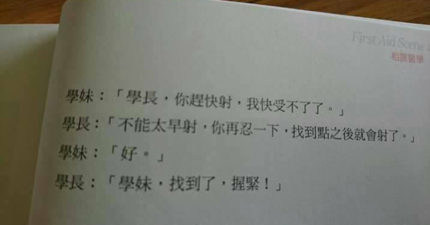 First Aid Scene
學妹：「學長，你趕快射，我快受不了了。」
學長：「不能太早射，你再忍一下，找到點之後就會射了。」
學妹：「好。」
學長：「學妹，找到了，握緊！」